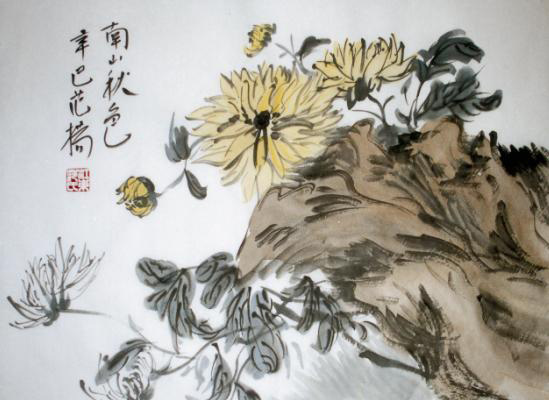 南山秋色
辛巳范楊